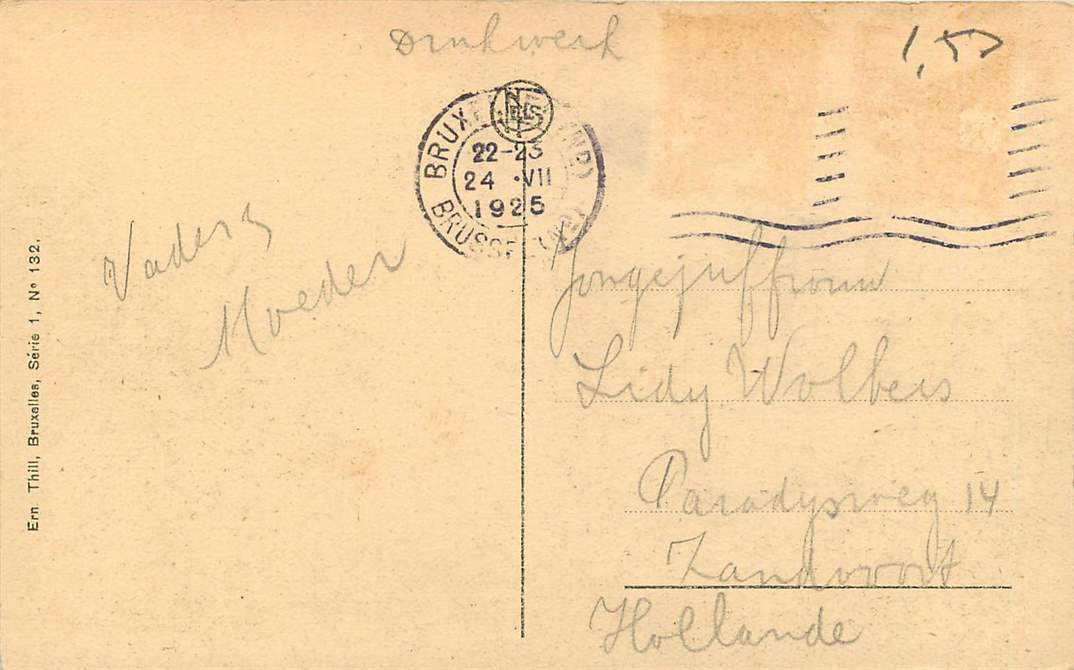 Drukwerk
1,50
BRUXELLES (MIDI)
22-23
24 ·VII
1925
BRUSSEL
NELS
Vader &
Moeder
Jongejuffrouw
Lidy Wolbers
Paradysweg 14
Zandvoort
Hollande
Ern Thill, Bruxelles, Série 1, Nº 132.